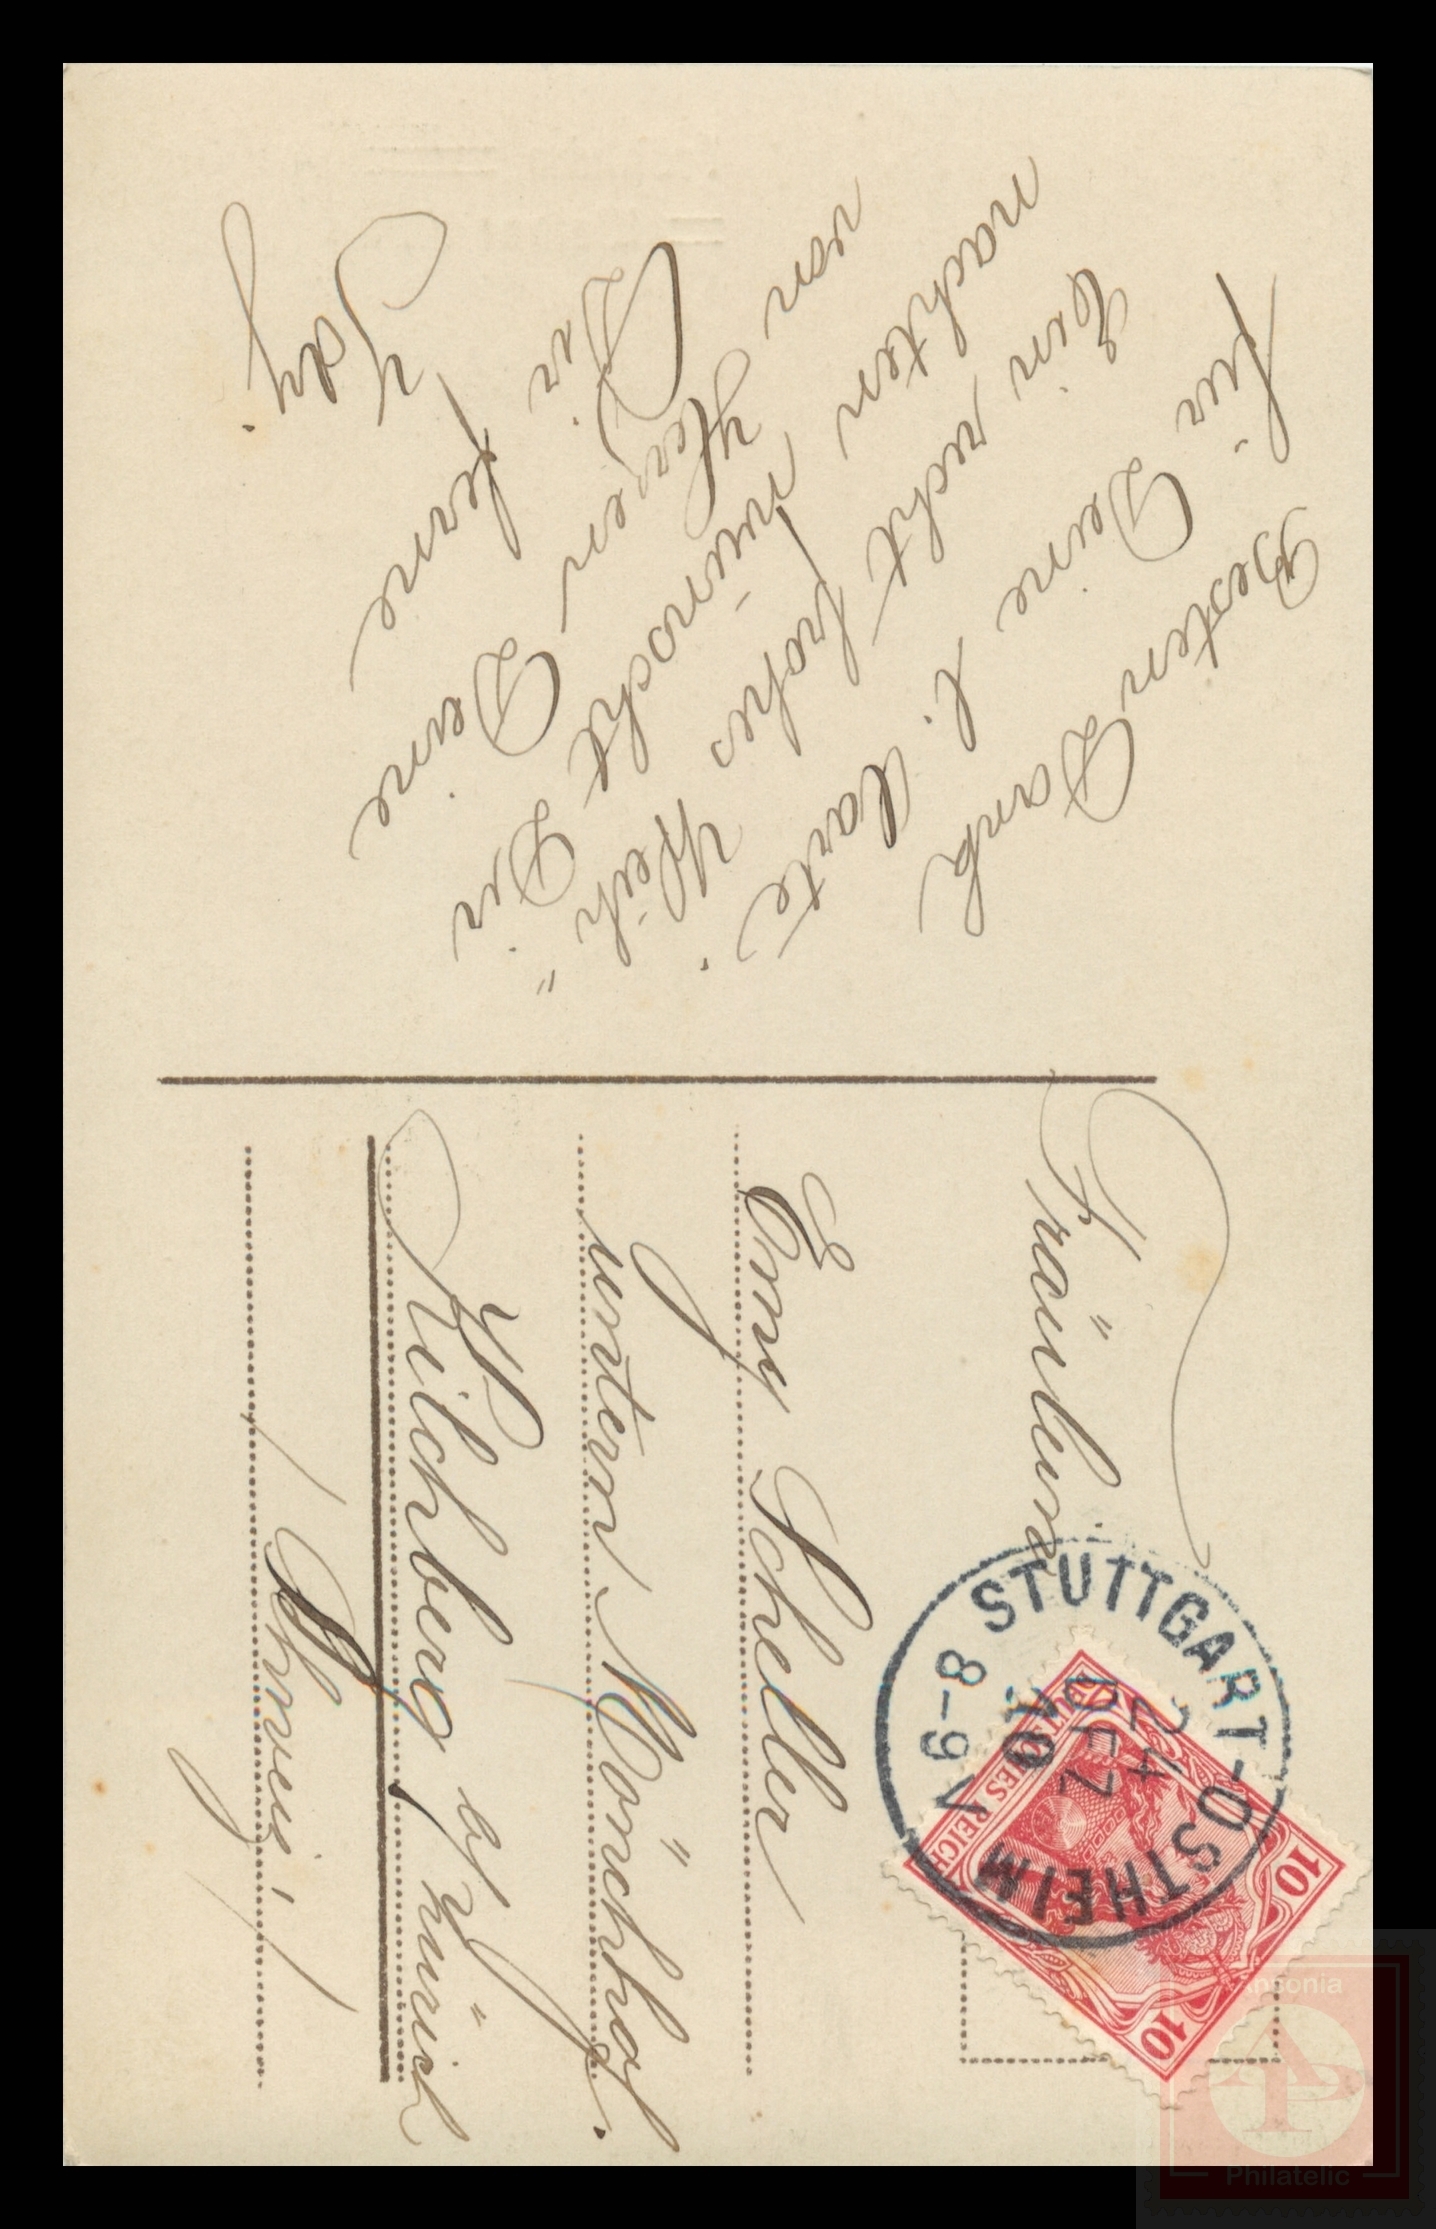 Besten Dank
für Deine l. Carte.
Ein recht frohes Weih"
nachten wünscht Dir
von Herzen Deine
Dir ferne
Idy.
Fräulein
Emy Scheller
untern Mönchhof.
Kilchberg b/ Zürich
(Schweiz.)
STUTTGART-OSTHEIM
24
DEZ
10
8-9 V
DEUTSCHES REICH
10
10
Ansonia
AP
Philatelic